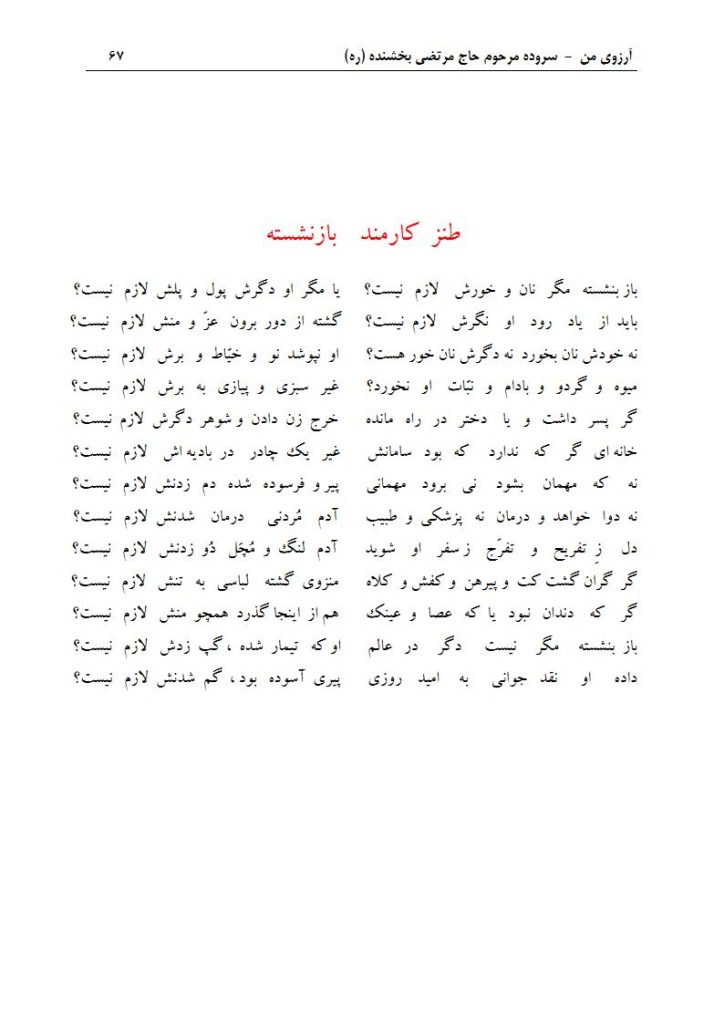 آرزوی من - سروده مرحوم حاج مرتضی بخشنده (ره) ۶۷
طنز کارمند بازنشسته
باز بنشسته مگر نان و خورش لازم نیست؟ یا مگر او دگرش پول و پلش لازم نیست؟
باید از یاد رود او نگرش لازم نیست؟ گشته از دور برون عزّ و منش لازم نیست؟
نه خودش نان بخورد نه دگرش نان خور هست؟ او نپوشد نو و خیّاط و برش لازم نیست؟
میوه و گردو و بادام و نبّات او نخورد؟ غیر سبزی و پیازی به برش لازم نیست؟
گر پسر داشت و یا دختر در راه مانده خرج زن دادن و شوهر دگرش لازم نیست؟
خانه ای گر که ندارد که بود سامانش غیر یک چادر در بادیه اش لازم نیست؟
نه که مهمان بشود نی برود مهمانی پیر و فرسوده شده دم زدنش لازم نیست؟
نه دوا خواهد و درمان نه پزشکی و طبیب آدم مُردنی درمان شدنش لازم نیست؟
دل زِ تفریح و تفرّج ز سفر او شوید آدم لنگ و مُچَل دُو زدنش لازم نیست؟
گر گران گشت کت و پیرهن و کفش و کلاه منزوی گشته لباسی به تنش لازم نیست؟
گر که دندان نبود یا که عصا و عینک هم از اینجا گذرد همچو منش لازم نیست؟
باز بنشسته مگر نیست دگر در عالم او که تیمار شده ، گپ زدش لازم نیست؟
داده او نقد جوانی به امید روزی پیری آسوده بود ، گم شدنش لازم نیست؟